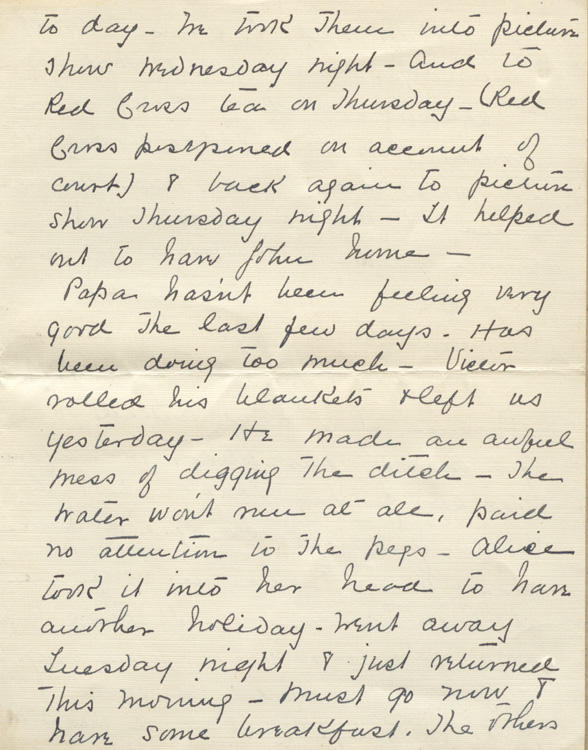 to day - We took them into picture
show Wednesday night - And to
Red Cross tea on Thursday - (Red
Cross postponed on account of
court) & back again to picture
show Thursday night - It helped
out to have John home -
Papa hasn't been feeling very
good the last few days. Has
been doing too much - Victor
rolled his blankets & left us
yesterday - He made an awful
mess of digging the ditch - The
water won't run at all, paid
no attention to the pegs - Alice
took it into her head to have
another holiday - Went away
Tuesday night & just returned
this morning - Must go now &
have some breakfast. The others